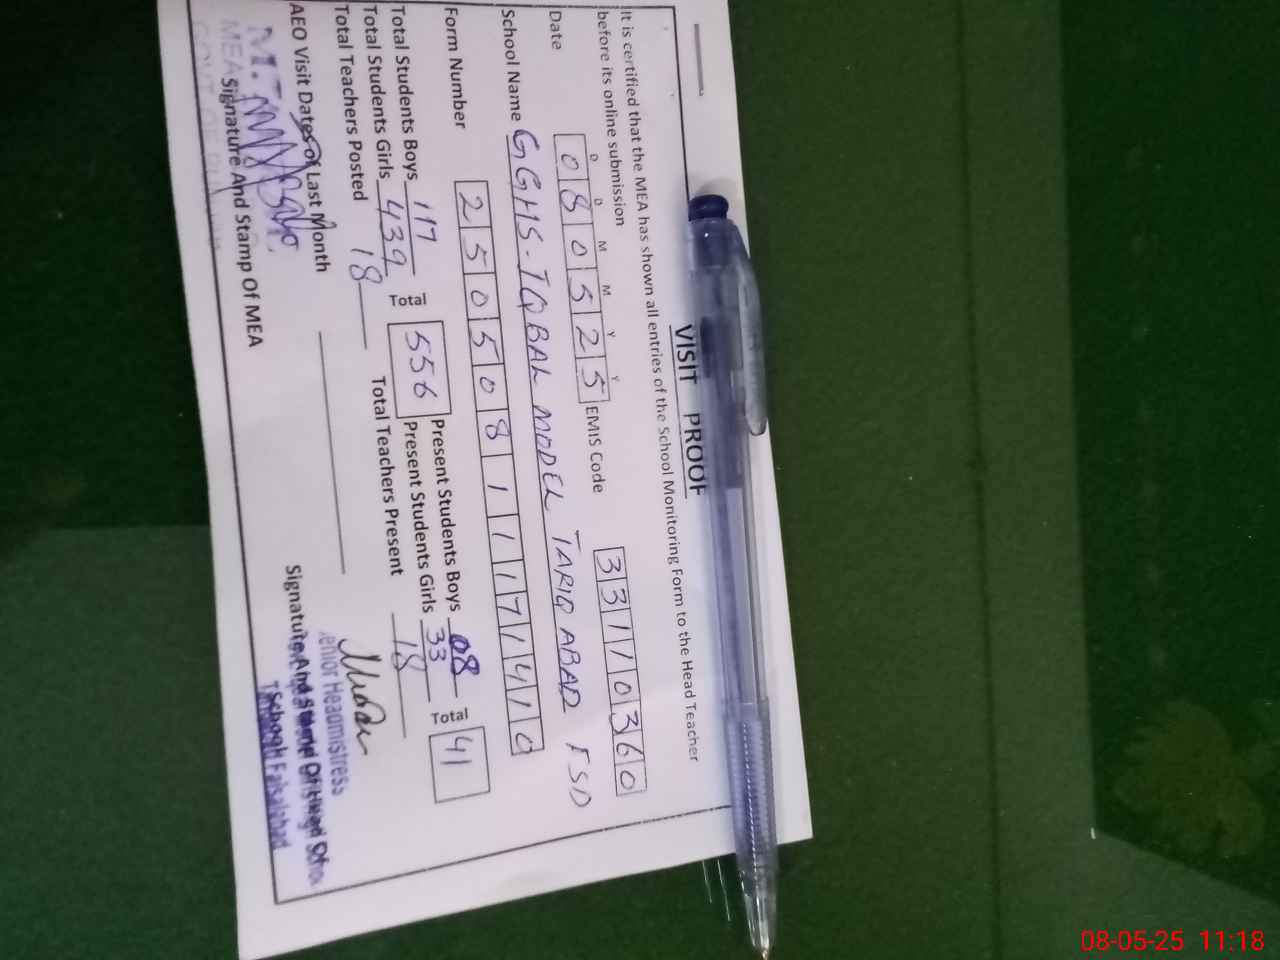 VISIT PROOF
It is certified that the MEA has shown all entries of the School Monitoring Form to the Head Teacher
before its online submission
D D M M Y Y
Date 080525 EMIS Code 33110360
School Name GGHS-IQBAL MODEL TARIQ ABAD FSD
Form Number 25050811171410
Total Students Boys 117 Total 556 Present Students Boys 08 Total 41
Total Students Girls 439 Present Students Girls 33
Total Teachers Posted 18 Total Teachers Present 18
AEO Visit Dates of Last Month
Signature And Stamp Of MEA
Signature And Stamp Of Head
Senior Headmistress
School Faisalabad
08-05-25 11:18